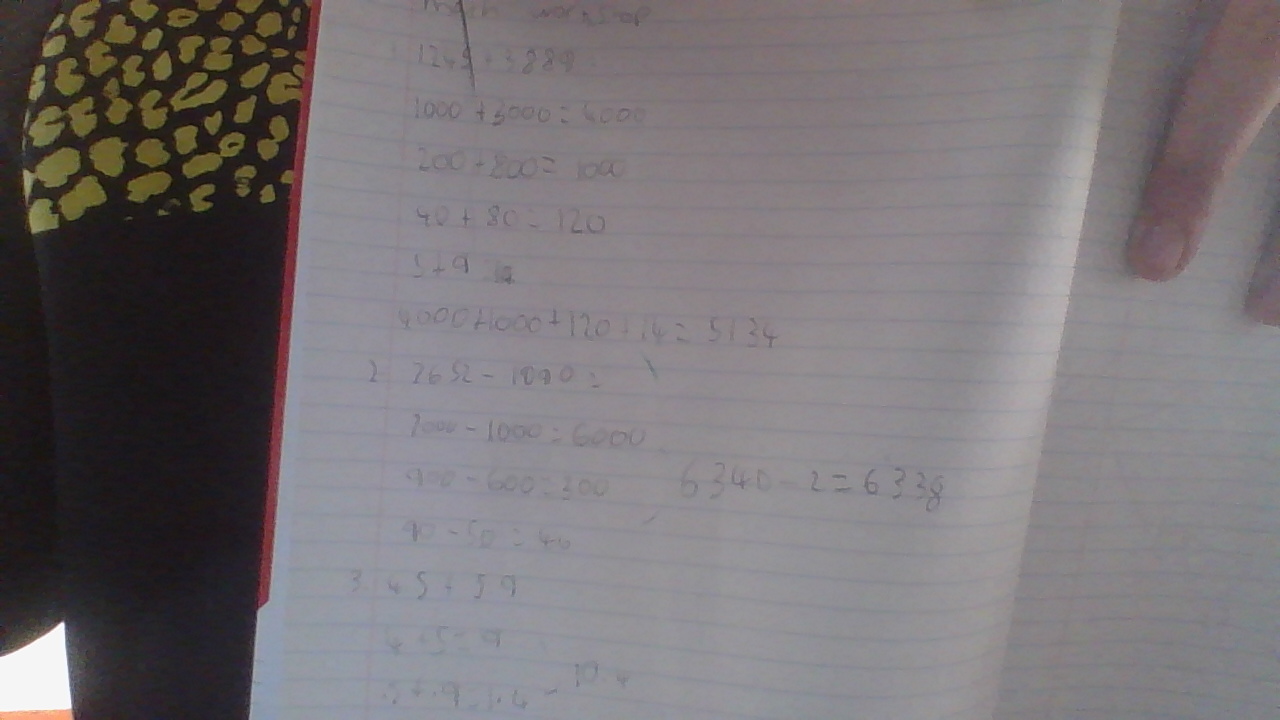 1245 + 3889
1000 + 3000 = 4000
200 + 800 = 1000
40 + 80 = 120
5 + 9 14
4000 + 1000 + 120 + 14 = 5134
2
7000 - 1000 = 6000
900 - 600 = 300 6340 - 2 = 6338
90 - 50 = 40
3 4.5 + 5.9
4 + 5 = 9
.5 + .9 = 1.4 - 10.4